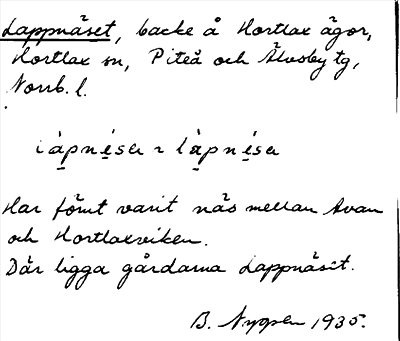 Lappnäset, backe å Hortlax ägor,
Hortlax sn, Piteå och Älvsby tg,
Norrb. l.
làpnésɐ ~ làpnésɐ
Har förut varit näs mellan Avan
och Hortlaxviken.
Där ligga gårdarna Lappnäset.
B. Nygren 1935.